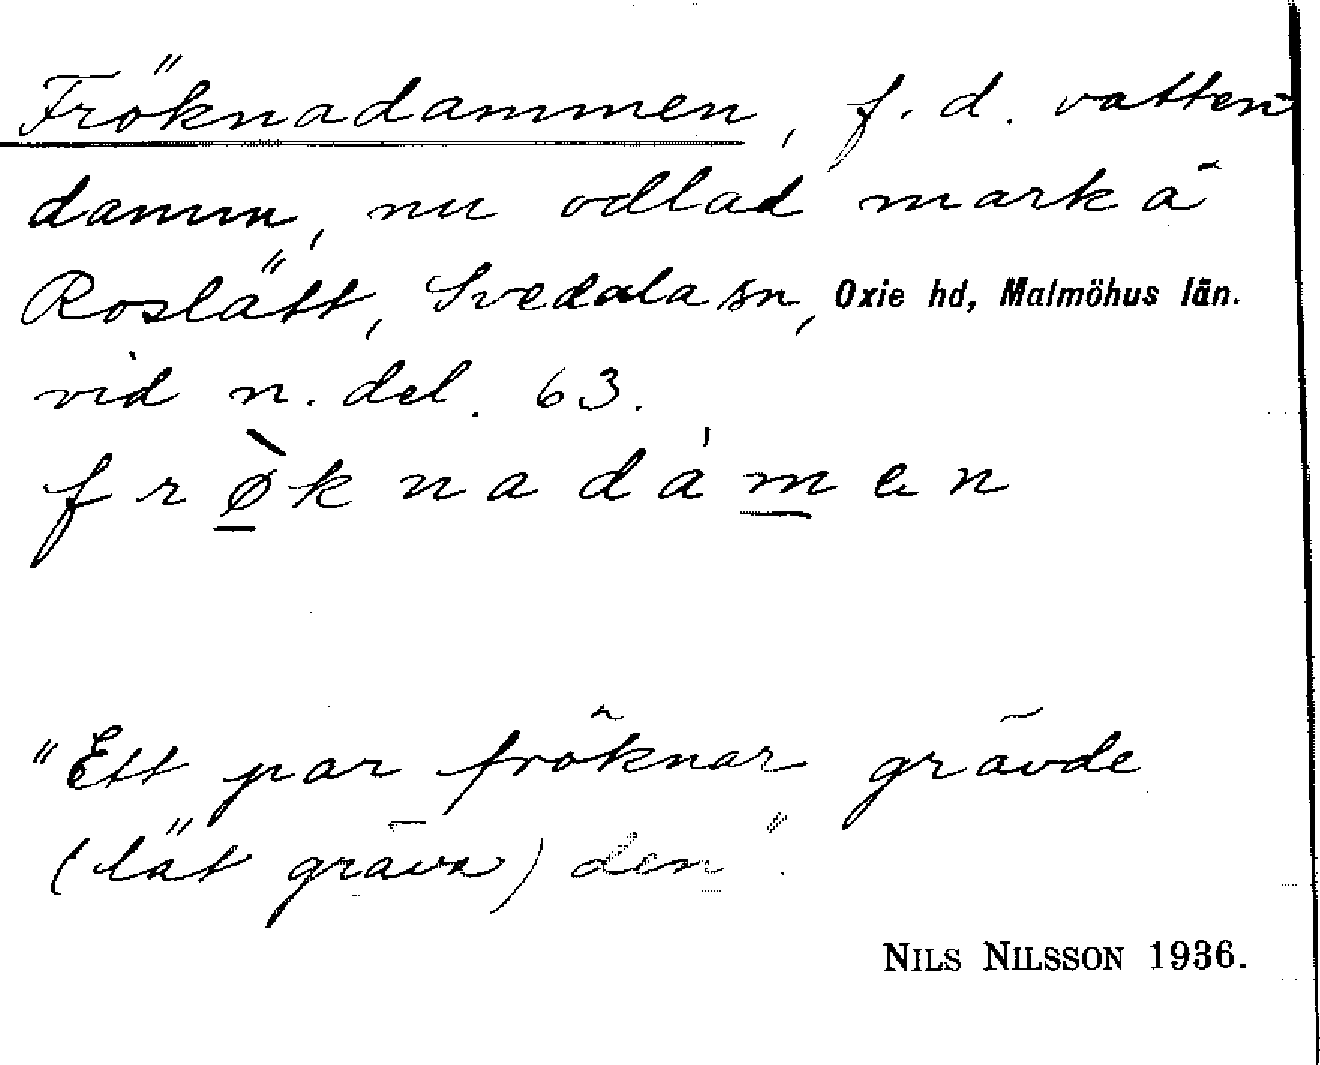 Fröknadammen, f. d. vatten
damm, nu odlad mark å
Roslätt, Svedala sn, Oxie hd, Malmöhus län.
vid n. del. 63.
frø̀knadámen
"Ett par fröknar grävde
(lät gräva) den".
NILS NILSSON 1936.